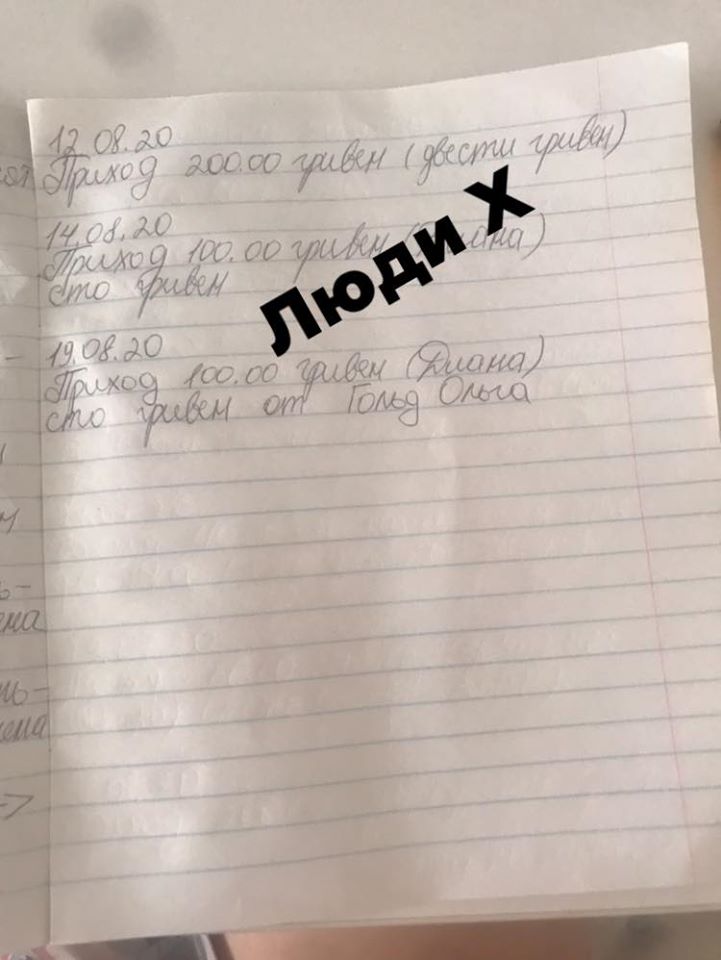 12.08.20
Приход 200.00 гривен (двести гривен)
14.08.20
Приход 100.00 гривен
сто гривен
Люди Х
19.08.20
Приход 100.00 гривен (Диана)
сто гривен от Гольд Ольга